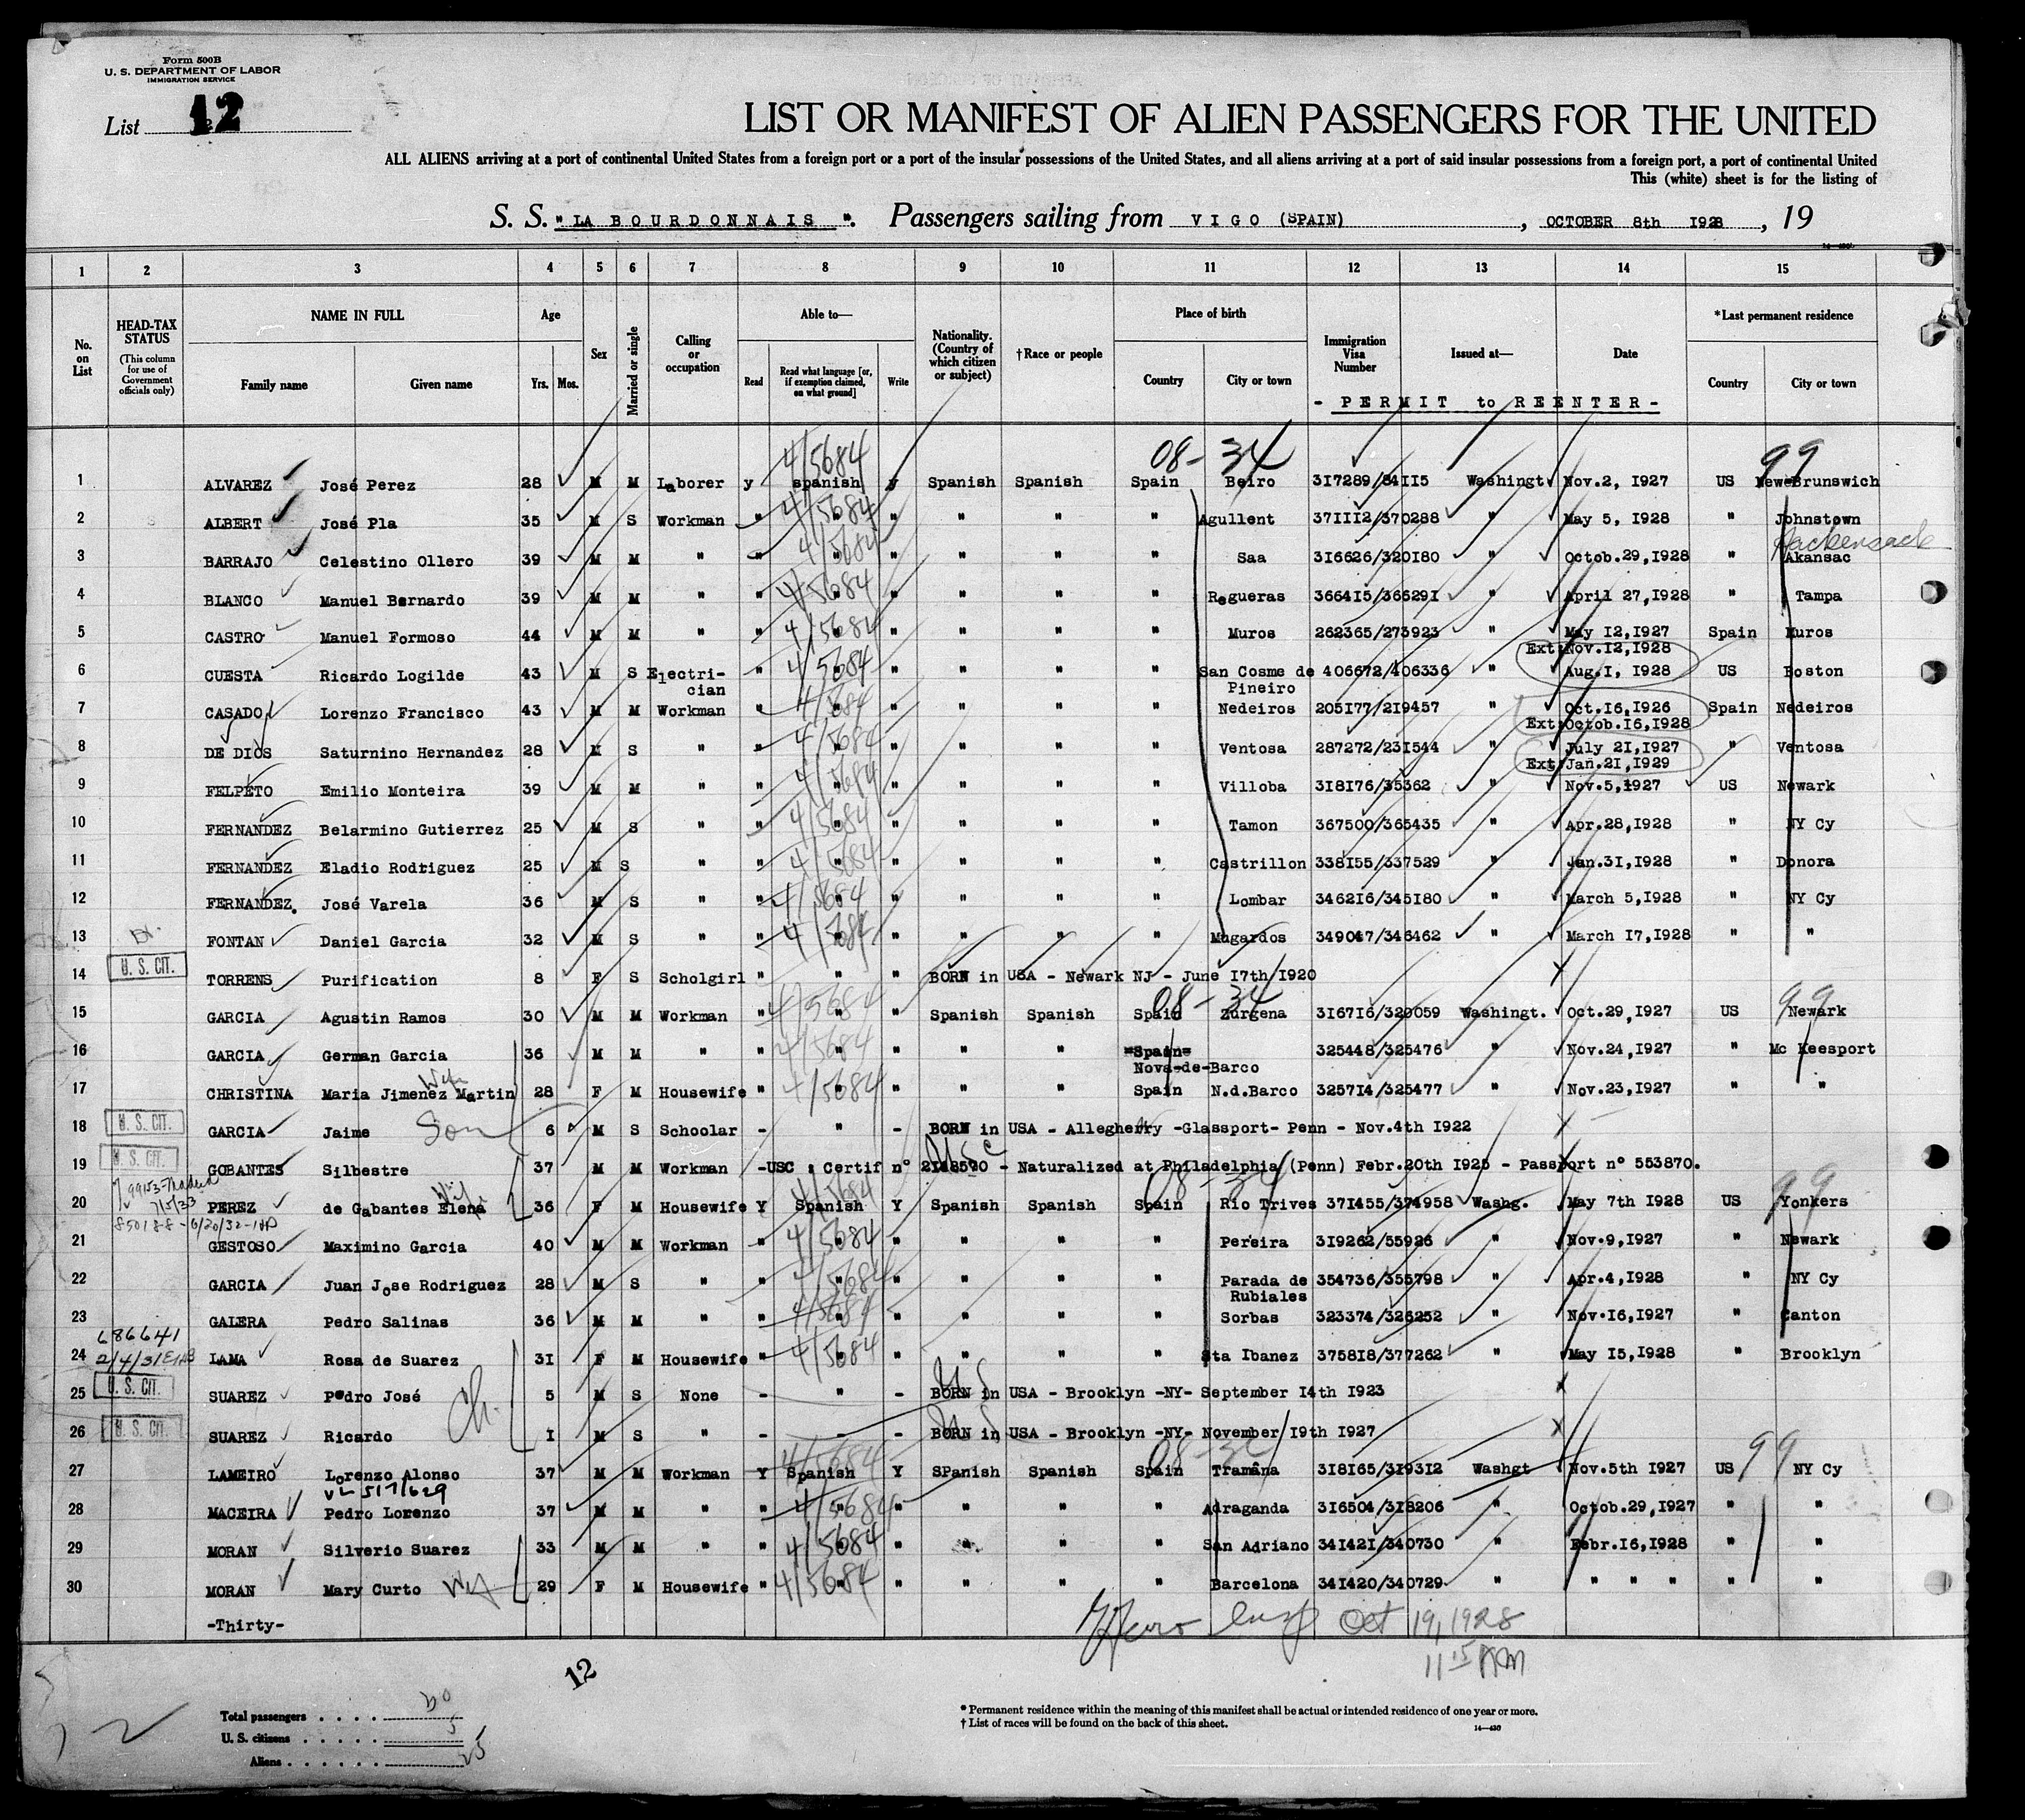 Form 500B
U. S. DEPARTMENT OF LABOR
IMMIGRATION SERVICE
List 12
LIST OR MANIFEST OF ALIEN PASSENGERS FOR THE UNITED
ALL ALIENS arriving at a port of continental United States from a foreign port or a port of the insular possessions of the United States, and all aliens arriving at a port of said insular possessions from a foreign port, a port of continental United
This (white) sheet is for the listing of
S. S. "LA BOURDONNAIS". Passengers sailing from VIGO (SPAIN), OCTOBER 8th 1928, 19
14-430
1 2 3 4 5 6 7 8 9 10 11 12 13 14 15
No. on List
HEAD-TAX STATUS (This column for use of Government officials only)
NAME IN FULL Family name Given name
Age Yrs. Mos.
Sex
Married or single
Calling or occupation
Able to— Read Read what language [or, if exemption claimed, on what ground] Write
Nationality. (Country of which citizen or subject)
†Race or people
Place of birth Country City or town
Immigration Visa Number
Issued at—
Date
*Last permanent residence Country City or town
- PERMIT to REENTER -
08-34 99
1 ALVAREZ José Perez 28 M M Laborer y 4/5684 spanish y Spanish Spanish Spain Beiro 317289/84115 Washingt. Nov.2, 1927 US New-Brunswich
2 ALBERT José Pla 35 M S Workman " 4/5684 " " " " " Agullent 371112/370288 " May 5, 1928 " Johnstown
Hackensack
3 BARRAJO Celestino Ollero 39 M M " " 4/5684 " " " " " Saa 316626/320180 " Octob.29,1928 " Akansac
4 BLANCO Manuel Bernardo 39 M M " " 4/5684 " " " " " Regueras 366415/366291 " April 27,1928 " Tampa
5 CASTRO Manuel Formoso 44 M M " " 4/5684 " " " " " Muros 262365/273923 " May 12,1927 Spain Muros
Ext:Nov.12,1928
6 CUESTA Ricardo Logilde 43 M S Electri- " 4/5684 " " " " " San Cosme de 406672/406336 " Aug.1, 1928 US Boston
cian Pineiro
7 CASADO Lorenzo Francisco 43 M M Workman " 4/5684 " " " " " Nedeiros 205177/219457 " Oct.16,1926 Spain Nedeiros
Ext:Octob.16,1928
8 DE DIOS Saturnino Hernandez 28 M S " " 4/5684 " " " " " Ventosa 287272/231544 " July 21,1927 " Ventosa
Ext:Jan.21,1929
9 FELPETO Emilio Monteira 39 M M " " 4/5684 " " " " " Villoba 318176/35362 " Nov.5,1927 US Newark
10 FERNANDEZ Belarmino Gutierrez 25 M S " " 4/5684 " " " " " Tamon 367500/365435 " Apr.28,1928 " NY Cy
11 FERNANDEZ Eladio Rodriguez 25 M S " " 4/5684 " " " " " Castrillon 338155/337529 " Jan.31,1928 " Donora
12 FERNANDEZ. José Varela 36 M S " " 4/5684 " " " " " Lombar 346216/345180 " March 5,1928 " NY Cy
13 FONTAN Daniel Garcia 32 M S " " 4/5684 " " " " " Mugardos 349047/346462 " March 17,1928 " "
14 U. S. CIT. TORRENS Purification 8 F S Scholgirl " " " BORN in USA - Newark NJ - June 17th 1920
08-34 99
15 GARCIA Agustin Ramos 30 M M Workman " 4/5684 " " Spanish Spanish Spain Zurgena 316716/320059 Washingt. Oct.29,1927 US Newark
16 GARCIA German Garcia 36 M M " " 4/5684 " " " " =Spain= 325448/325476 " Nov.24,1927 " Mc Keesport
Nova-de-Barco
17 CHRISTINA Maria Jimenez Martin 28 F M Housewife " 4/5684 " " " " Spain N.d.Barco 325714/325477 " Nov.23,1927 " "
18 U. S. CIT. GARCIA Jaime Son 6 M S Schoolar - " - BORN in USA - Allegherry -Glassport- Penn - Nov.4th 1922
19 U. S. CIT. GOBANTES Silbestre 37 M M Workman -USC : Certif n° 2148590 - Naturalized at Philadelphia (Penn) Febr.20th 1925 - Passport n° 553870.
08-34 99
20 PEREZ de Gabantes Elena Wife 36 F M Housewife Y 4/5684 Spanish Y Spanish Spanish Spain Rio Trives 371455/374958 Washg. May 7th 1928 US Yonkers
21 GESTOSO Maximino Garcia 40 M M Workman " 4/5684 " " " " " Pereira 319262/55926 " Nov.9,1927 " Newark
22 GARCIA Juan Jose Rodriguez 28 M S " " 4/5684 " " " " " Parada de 354736/355798 " Apr.4,1928 " NY Cy
Rubiales
23 GALERA Pedro Salinas 36 M M " " 4/5684 " " " " " Sorbas 323374/326252 " Nov.16,1927 " Canton
686641
24 2/4/31 LAMA Rosa de Suarez 31 F M Housewife " 4/5684 " " " " " Sta Ibanez 375818/377262 " May 15,1928 " Brooklyn
25 U. S. CIT. SUAREZ Pedro José 5 M S None - " - BORN in USA - Brooklyn -NY- September 14th 1923
Ch.
26 U. S. CIT. SUAREZ Ricardo 1 M S " - - - BORN in USA - Brooklyn -NY- November 19th 1927
08-34 99
27 LAMEIRO Lorenzo Alonso 37 M M Workman Y 4/5684 Spanish Y SPanish Spanish Spain Tramâna 318165/319312 Washgt Nov.5th 1927 US NY Cy
28 MACEIRA Pedro Lorenzo 37 M M " " 4/5684 " " " " " Adraganda 316504/318206 " Octob.29,1927 " "
29 MORAN Silverio Suarez 33 M M " " 4/5684 " " " " " San Adriano 341421/340730 " Febr.16,1928 " "
30 MORAN Mary Curto 29 F M Housewife " 4/5684 " " " " " Barcelona 341420/340729 " " " " " "
-Thirty-
Oct 19, 1928
11 15 AM
12
Total passengers 30
U. S. citizens 5
Aliens 25
* Permanent residence within the meaning of this manifest shall be actual or intended residence of one year or more.
† List of races will be found on the back of this sheet.
14-430